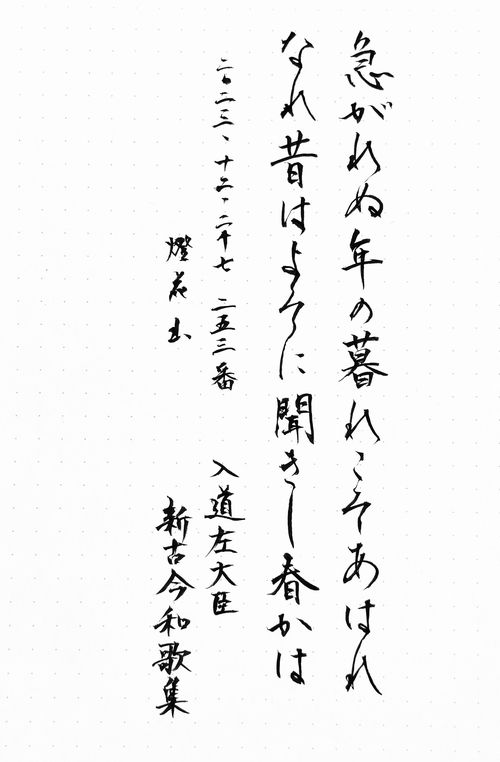 急がれぬ年の暮れこそあはれ
なれ昔はよそに聞きし春かは
二〇二三、十二、二十七 二五三番
入道左大臣
燈花生
新古今和歌集